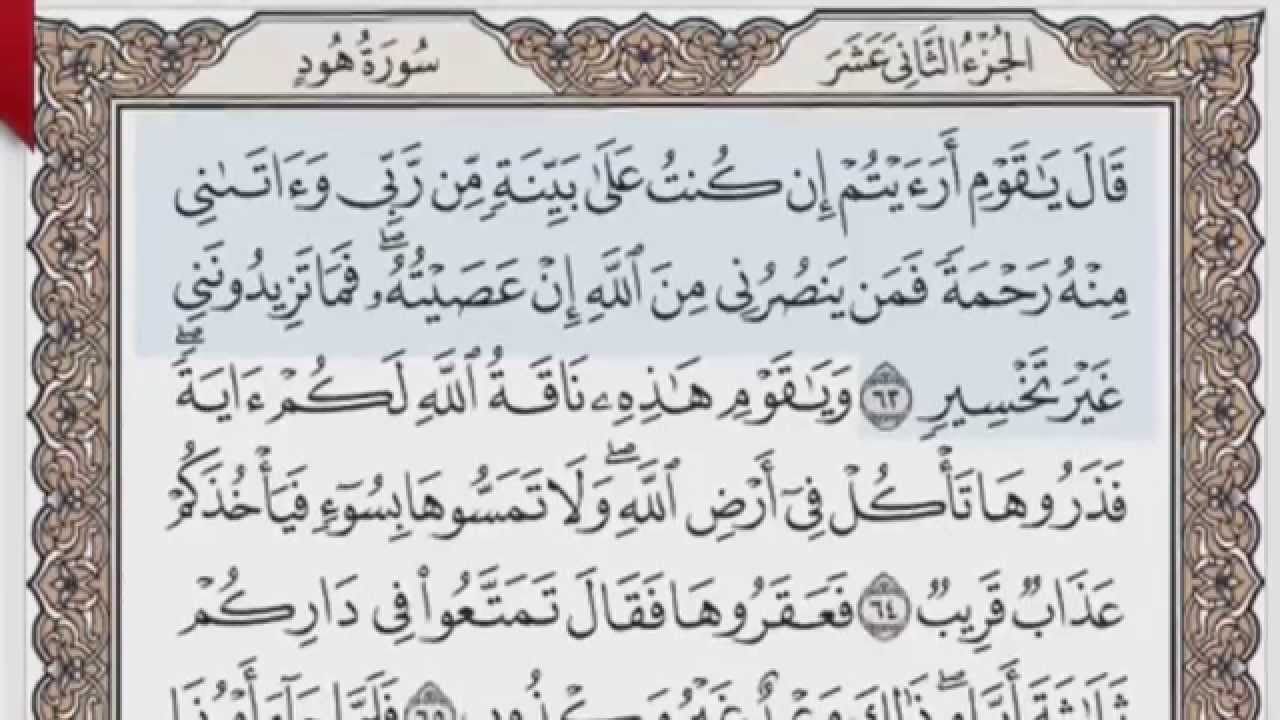 الجزء الثاني عشر
سورة هود
قَالَ يَٰقَوْمِ أَرَءَيْتُمْ إِن كُنتُ عَلَىٰ بَيِّنَةٍ مِّن رَّبِّى وَءَاتَىٰنِى
مِنْهُ رَحْمَةً فَمَن يَنصُرُنِى مِنَ ٱللَّهِ إِنْ عَصَيْتُهُۥ ۖ فَمَا تَزِيدُونَنِى
غَيْرَ تَخْسِيرٍ ٦٣ وَيَٰقَوْمِ هَٰذِهِۦ نَاقَةُ ٱللَّهِ لَكُمْ ءَايَةً ۖ
فَذَرُوهَا تَأْكُلْ فِىٓ أَرْضِ ٱللَّهِ ۖ وَلَا تَمَسُّوهَا بِسُوٓءٍ فَيَأْخُذَكُمْ
عَذَابٌ قَرِيبٌ ٦٤ فَعَقَرُوهَا فَقَالَ تَمَتَّعُوا۟ فِى دَارِكُمْ
ثَلَٰثَةَ أَيَّامٍ ۖ ذَٰلِكَ وَعْدٌ غَيْرُ مَكْذُوبٍ ٦٥ فَلَمَّا جَآءَ أَمْرُنَا